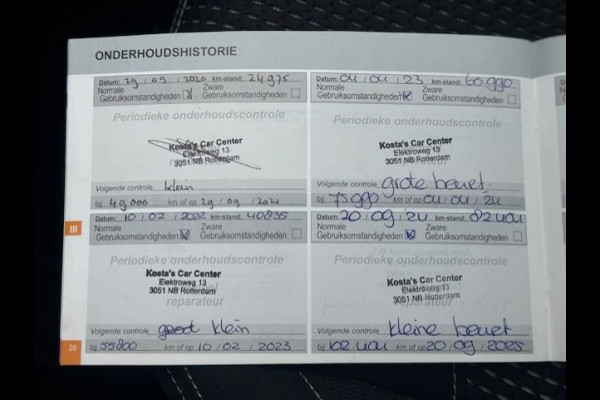 ONDERHOUDSHISTORIE
Datum: 29 / 09 / 2020 km-stand: 24975
Normale Zware
Gebruiksomstandigheden Gebruiksomstandigheden
Periodieke onderhoudscontrole
Kosta's Car Center
Elektroweg 13
3051 NB Rotterdam
Volgende controle klein
bij 49000 km of op 29 / 09 / 2021
Datum: 04 / 04 / 23 km-stand: 60990
Normale Zware
Gebruiksomstandigheden Gebruiksomstandigheden
Periodieke onderhoudscontrole
Kosta's Car Center
Elektroweg 13
3051 NB Rotterdam
Volgende controle grote beurt.
bij 75990 km of op 04 / 04 / 24
III
Datum: 10 / 02 / 2022 km-stand: 40835
Normale Zware
Gebruiksomstandigheden Gebruiksomstandigheden
Periodieke onderhoudscontrole
Kosta's Car Center
Elektroweg 13
3051 NB Rotterdam
reparateur
Volgende controle groot klein
bij 55800 km of op 10 / 02 / 2023
Datum: 20 / 09 / 24 km-stand:
Normale Zware
Gebruiksomstandigheden Gebruiksomstandigheden
Periodieke onderhoudscontrole
Kosta's Car Center
Elektroweg 13
3051 NB Rotterdam
reparateur
Volgende controle kleine beurt
bij km of op 20 / 09 / 2025
26